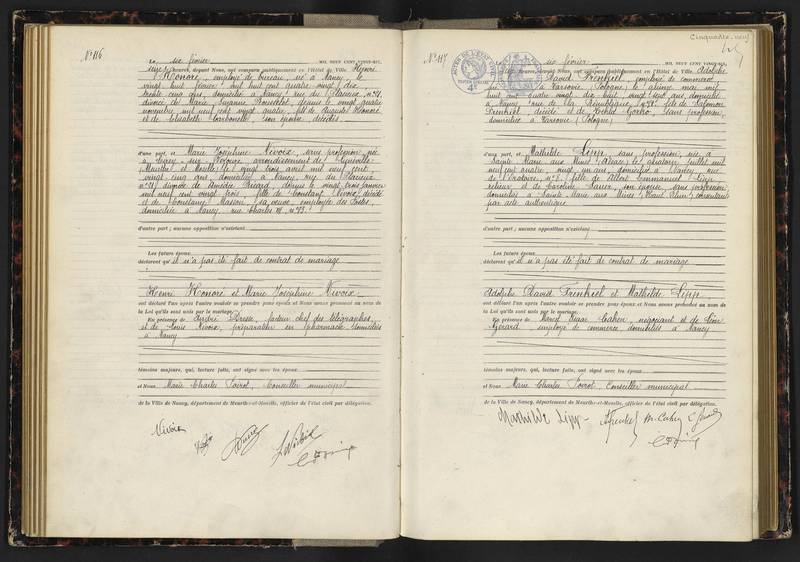 N° 116
Le six février MIL NEUF CENT VINGT-SIX,
seize heures, devant Nous, ont comparu publiquement en l'Hôtel de Ville Henri
Honoré, employé de bureau, né à Nancy, le
vingt huit février mil huit cent quatre vingt dix
trente cinq ans, domicilié à Nancy, rue du Placieux, n°
divorcé de Marie Suzanne depuis le vingt quatre
novembre mil neuf cent vingt quatre, fils de Auguste Honoré
et de Elisabeth son épouse, décédés.
d'une part, et Marie Joséphine Nivoix, sans profession, née
à Cirey sur Vezouze arrondissement de Lunéville
Meurthe et Moselle le vingt trois avril mil neuf cent,
vingt cinq ans, domiciliée à Nancy, rue du Placieux
n° divorcée de Amédée Picard, depuis le vingt trois janvier
mil neuf cent vingt trois fille de Constant Nivoix, décédé
et de Constance sa veuve, employée des Postes,
domiciliée à Nancy rue Charles III, n° 73.
d'autre part; aucune opposition n'existant
Les futurs époux
déclarent qu'il n'a pas été fait de contrat de mariage
Henri Honoré et Marie Joséphine Nivoix
ont déclaré l'un après l'autre vouloir se prendre pour époux et Nous avons prononcé au nom de
la Loi qu'ils sont unis par le mariage.
En présence de André facteur chef des télégraphes,
et de Louis Nivoix, préparateur en pharmacie domiciliés
à Nancy
témoins majeurs, qui, lecture faite, ont signé avec les époux
et Nous Marie Charles Poirot, Conseiller municipal
de la Ville de Nancy, département de Meurthe-et-Moselle, officier de l'état civil par délégation.
Nivoix
Cinquante-neuf
N° 117
Le six février MIL NEUF CENT VINGT-SIX,
heures, devant Nous, ont comparu publiquement en l'Hôtel de Ville Adolphe
David Frenkiel, employé de commerce,
né à Varsovie (Pologne) le quinze mai mil
huit cent quatre vingt dix huit, vingt sept ans, domicilié
à Nancy, rue de la République, n° fils de Salomon
Frenkiel, décédé et de sans profession,
domiciliée à Varsovie (Pologne)
d'une part, et Mathilde Lipp sans profession, née à
Sainte Marie aux Mines (Alsace) le quatorze juillet mil
neuf cent quatre, vingt un ans, domiciliée à Nancy, rue
de n° fille de Albert Emmanuel Lipp
relieur et de Caroline son épouse, sans profession,
domiciliés à Sainte Marie aux Mines (Haut Rhin), consentants
par acte authentique
d'autre part; aucune opposition n'existant
Les futurs époux
déclarent qu'il n'a pas été fait de contrat de mariage
Adolphe David Frenkiel et Mathilde Lipp
ont déclaré l'un après l'autre vouloir se prendre pour époux et Nous avons prononcé au nom de
la Loi qu'ils sont unis par le mariage.
En présence de Marcel Isaac Cahen, négociant et de Léon
Gérard employé de commerce domiciliés à Nancy
témoins majeurs, qui, lecture faite, ont signé avec les époux
et Nous Marie Charles Poirot, Conseiller municipal
de la Ville de Nancy, département de Meurthe-et-Moselle, officier de l'état civil par délégation.
Mathilde Lipp A Frenkiel M. Cahen